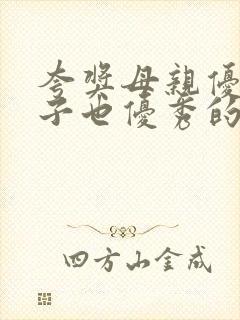 夸獎母親優
子也優秀的
四方山金成